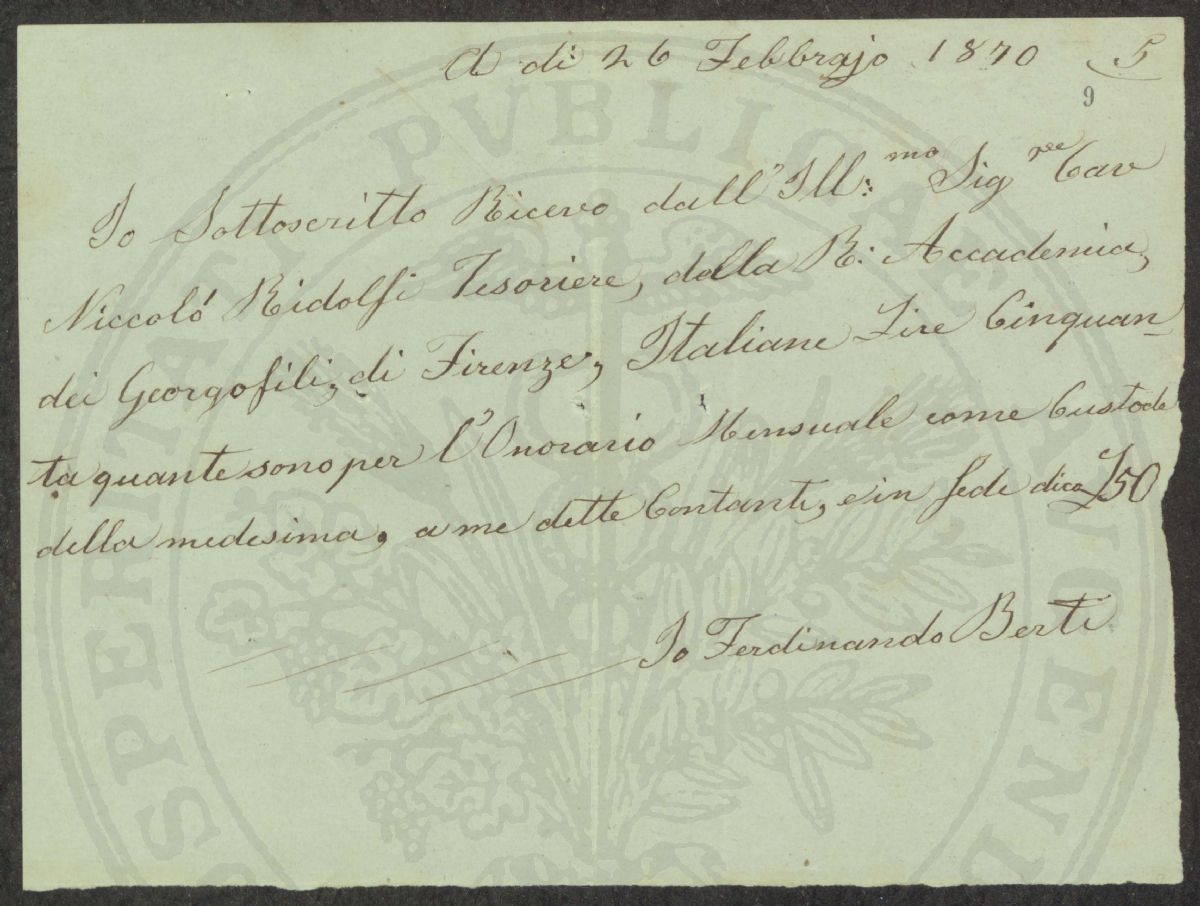 A di 26 Febbrajo 1870 5
9
Io Sottoscritto Ricevo dall' Ill:mo Sigre Cav
Niccoló Ridolfi Tesoriere, della R: Accademia,
dei Georgofili, di Firenze, Italiane Lire Cinquan
ta quante sono per l'Onorario Mensuale come Custode
della medesima, a me dette Contanti, e in fede dico £50
Io Ferdinando Berti
PROSPERITATI PVBLICAE AVGENDAE